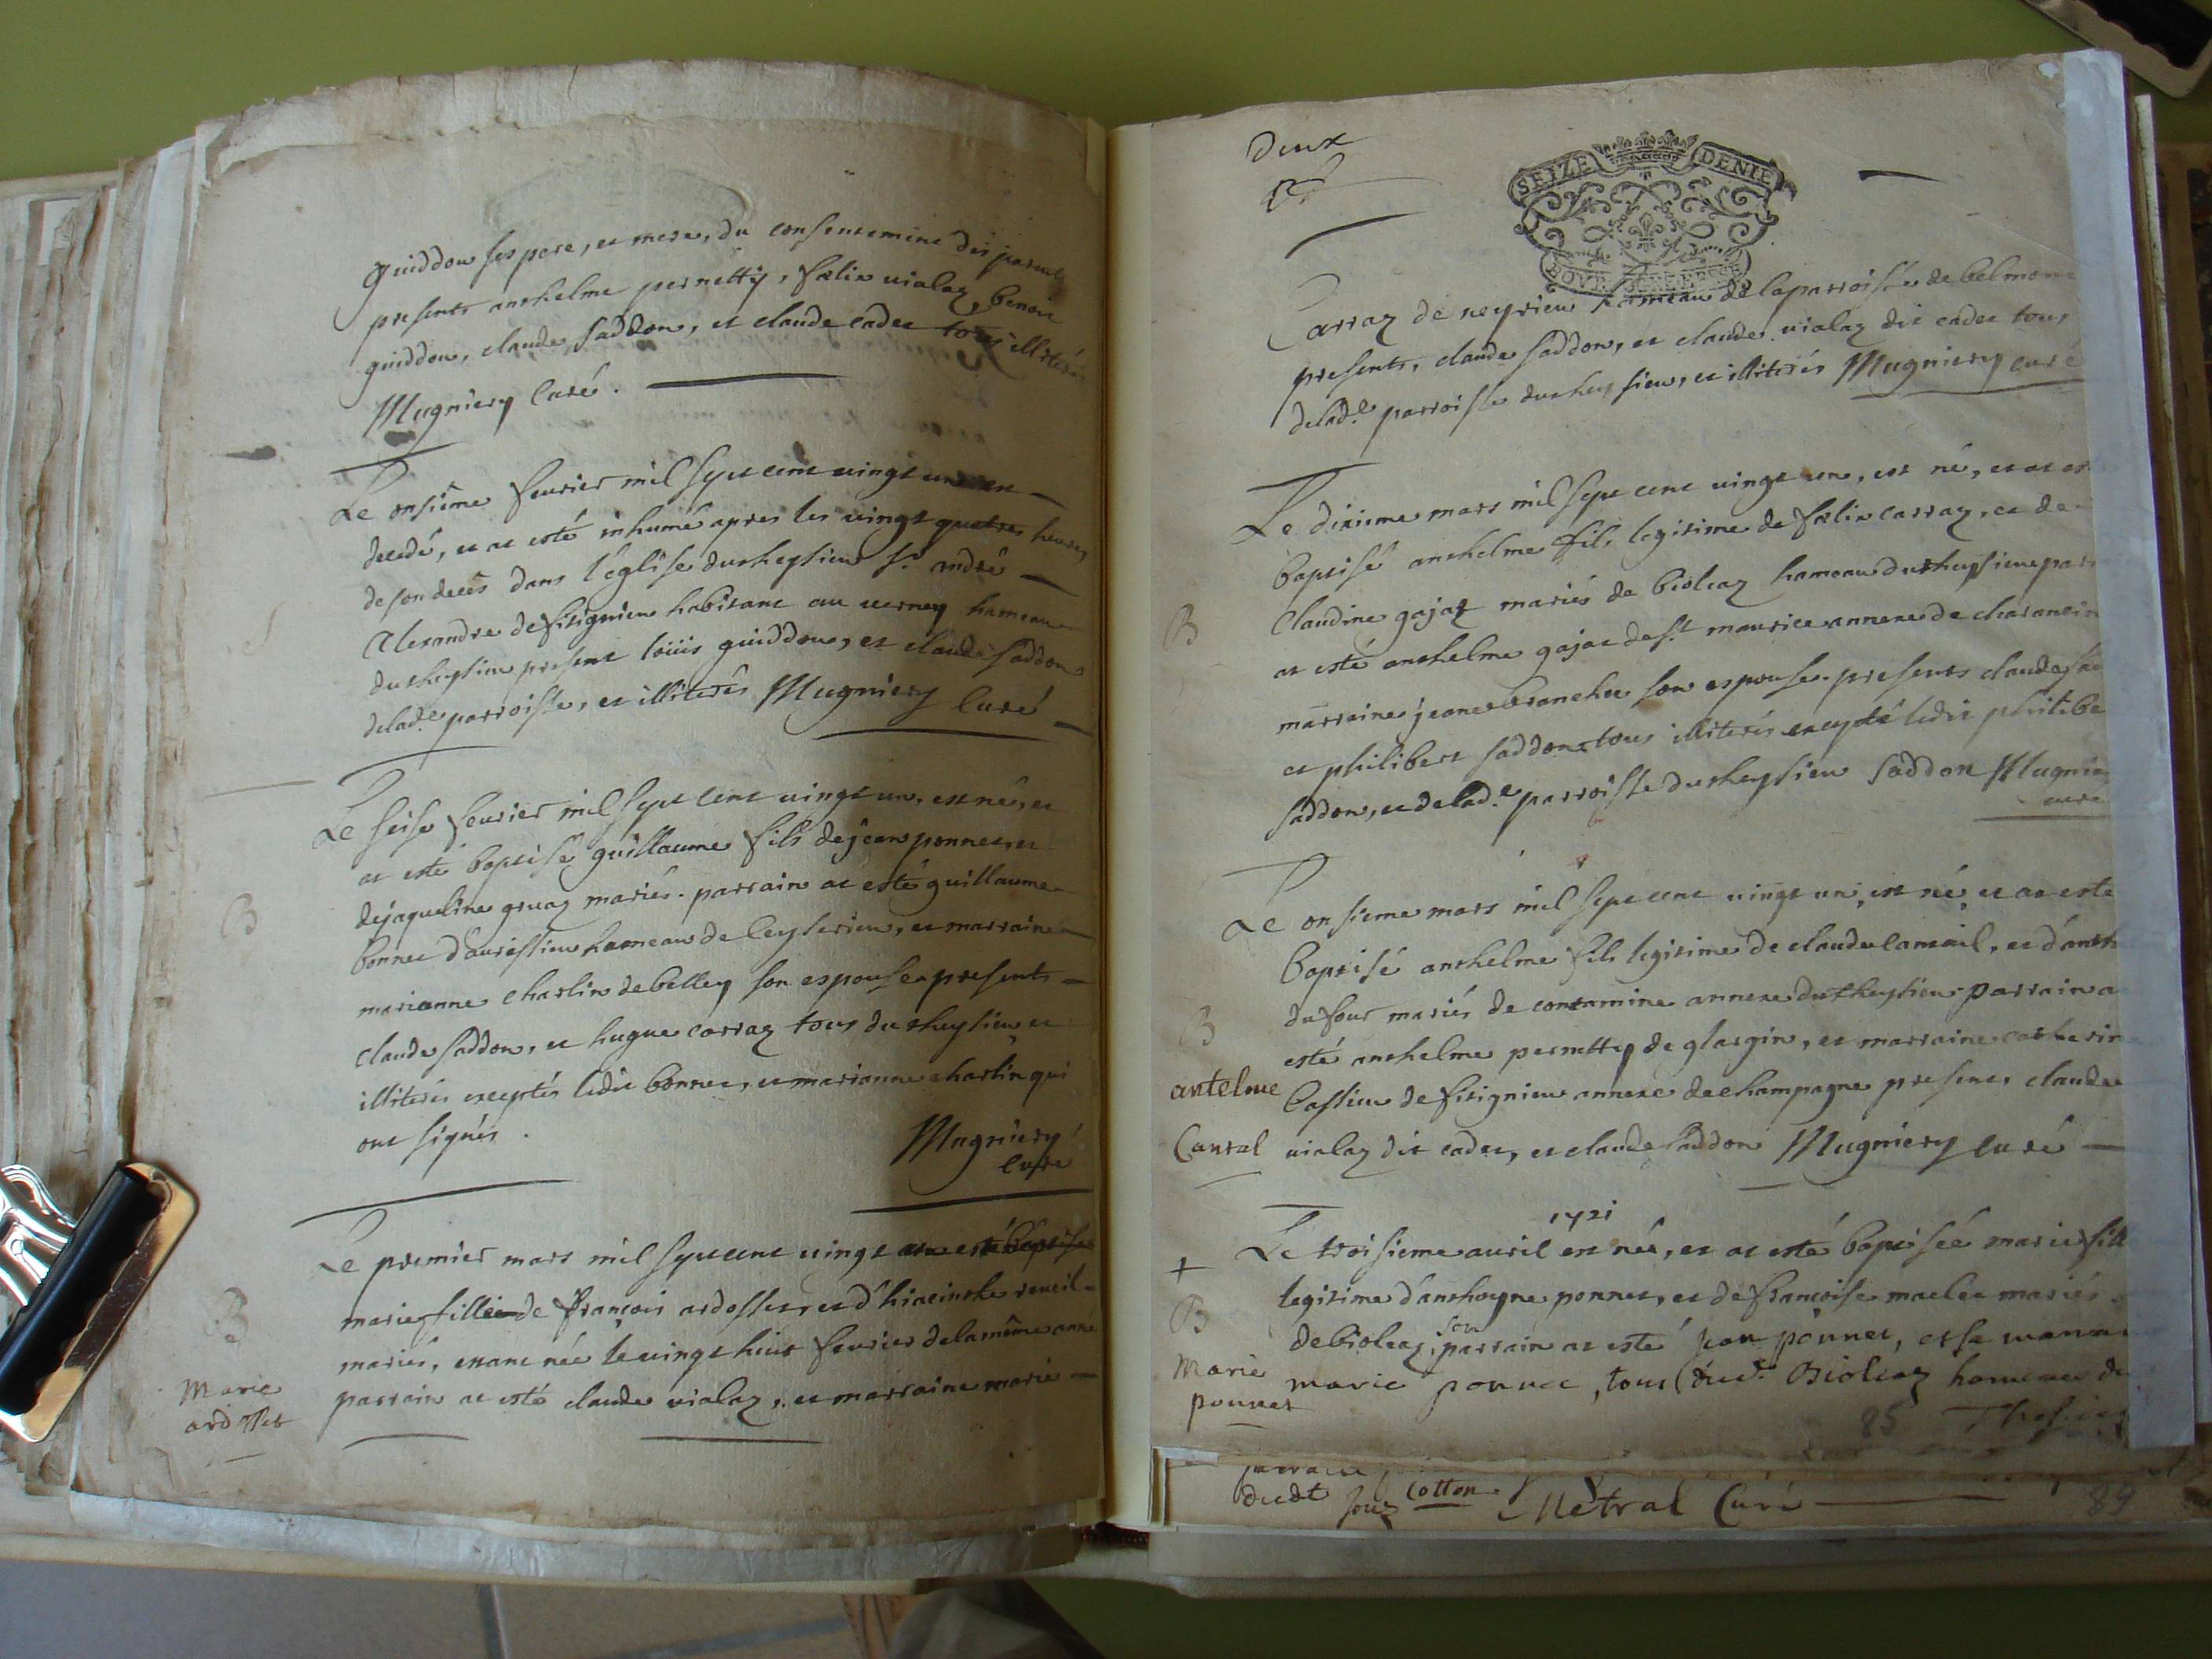 guiddon ses pere, et mere, du consentement des parents
presents anthelme pernetty, foelix vialaz, benoit
guiddon, claude saddon, et claude cadet tous illiterés
Mugniery Curé.
Le onsiême feurier mil sept cent vingt un est
decedé, et at esté inhumé apres les vingt quatres heures
de son decès dans l'eglise dutheysieu Sr. André
Alexandre de fisignieu habitant au verney hameau
dutheysieu present loüis guiddon, et claude saddon
delade. parroisse, et illiterés Mugniery Curé
Le seise feurier mil sept cent vingt un, est né, et
at esté baptisé guillaume fils de jean ponnet, et
de jaqueline gruaz mariés. parrain at esté guillaume
bonnet d'auressieu hameau de Ceyserieu, et marraine
marianne charlin de belley son espouse presents
claude saddon, et hugue carraz tous dutheysieu et
illiterés exceptés ledit bonnet, et marianne charlin qui
ont signés.
Mugniery
Curé
B
Le premier mars mil sept cent vingt une esté baptisé
marie fille de françois ardosset, et d'hiacinthe reveil
mariés, estant née le vingt huit feurier de la même anné
parrain at esté claude vialaz, et marraine marie
B
Marie
ardosset
deux
SEIZE DENIE
Carraz de neyrieu hameau de la parroisse de belmont
presents, claude saddon, et claude vialaz dit cadet tous
delade. parroisse dutheysieu, et illiterés Mugniery curé
Le dixieme mars mil sept cent vingt un, est né, et at esté
baptisé anthelme fils legitime de foelix carraz, et de
Claudine gajaz mariés de bioleaz hameau dutheysieu parr
at esté anthelme gajat de st maurice annexe de charancin
marraine jeane branchu son espouse. presents claude sad
et philibert saddon tous illiterés excepté ledit philibe
saddon, et delade. parroisse dutheysieu saddon Mugnie
curé
B
Le onsieme mars mil sept cent vingt un, est né, et at esté
baptisé anthelme fils legitime de claude canral, et d'anth
dufour mariés de contamine annexe dutheysieu parrain a
esté anthelme pernetty de glargin, et marraine catherin
Cassieu de fisignieu annexe de champagne presents claude
vialaz dit cadet, et claude saddon Mugniery curé
B
antelme
Canral
1721
Le troisieme auril est née, et at esté baptisée marie fill
legitime d'anthoyne ponnet, et de françoise maclet mariés
de bioleaz, son parrain at esté jean ponnet, et sa marrai
marie ponnet, tous dud. Bioleaz hameau du
+
B
Marie
ponnet
85
Thesieu
dudt
Cotton
Metral Curé
89